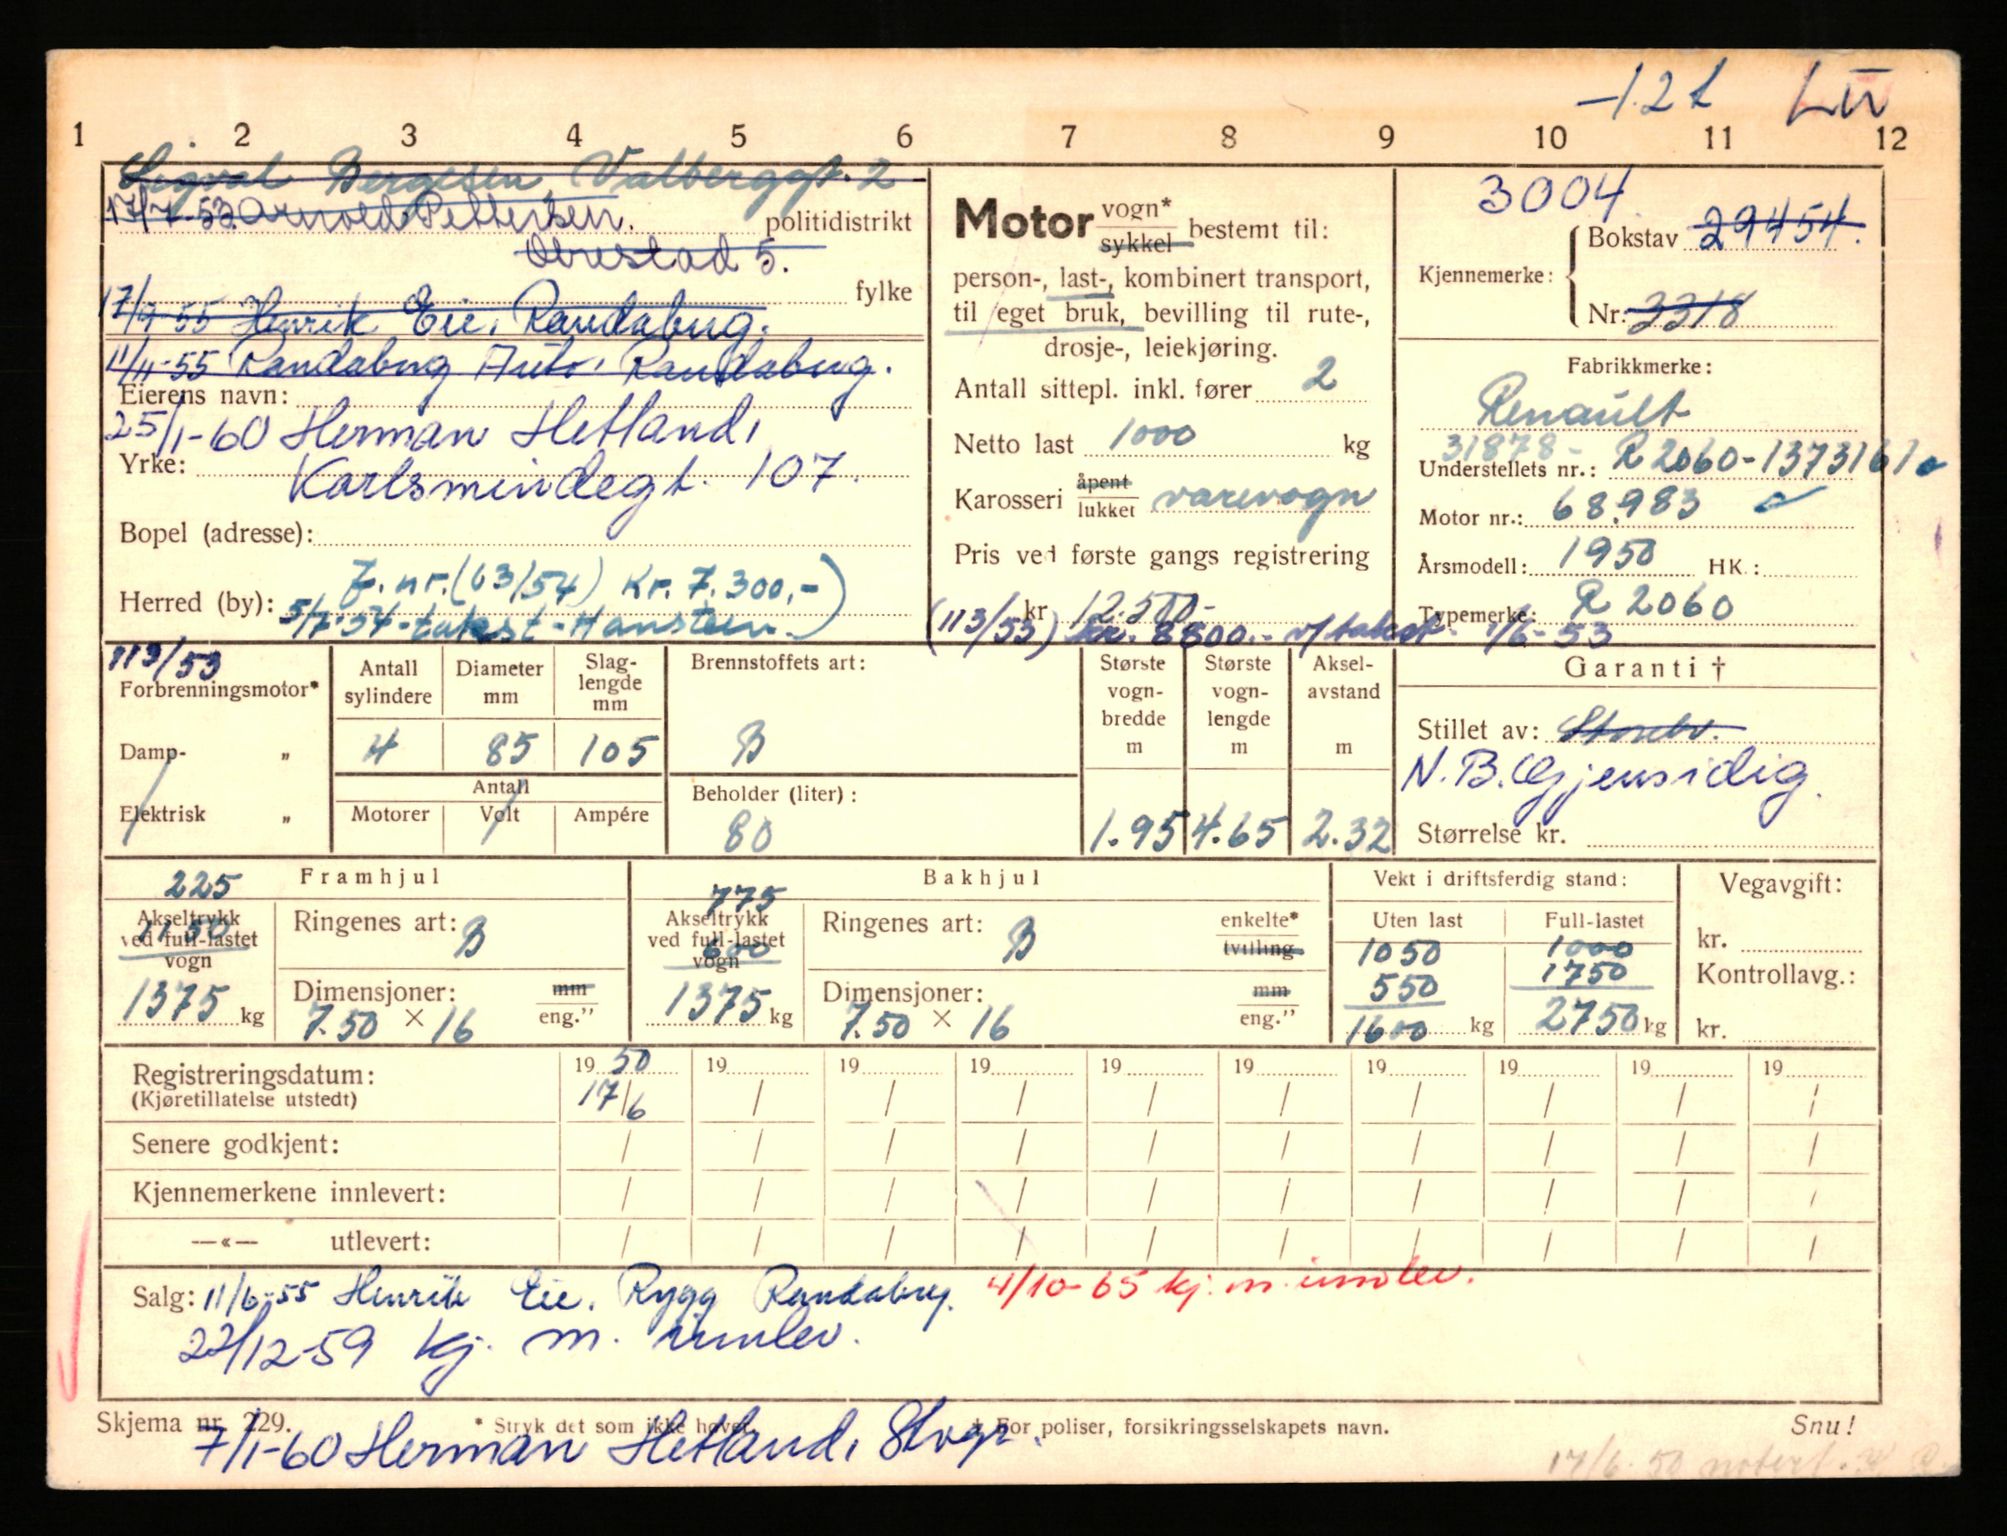 -1.2 t
1 2 3 4 5 6 7 8 9 10 11 12
Sigval Bergesen Valberggt. 2
17/7-53. Arnold Pettersen. politidistrikt
5.
17/9-55 Henrik Eie, Randaberg. fylke
11/11-55 Randaberg Auto, Randaberg.
Eierens navn:
25/1-60 Herman Hetland,
Yrke:
Karlsmindegt. 107.
Bopel (adresse):
F. nr. (63/54) Kr. 7.300,-)
Herred (by):
5/7-54-takst-Hansteen
Motor vogn* sykkel bestemt til:
person-, last-, kombinert transport,
til eget bruk, bevilling til rute-,
drosje-, leiekjøring.
Antall sittepl. inkl. fører 2
Netto last 1000 kg
Karosseri åpent lukket varevogn
Pris ved første gangs registrering
kr 12.500-
(113/53) kr. 8800.- v/takst. 1/6-53
3004.
Kjennemerke: Bokstav 29454.
Nr: 3318
Fabrikkmerke:
Renault
31878-
Understellets nr.: R2060-1373161
Motor nr.: 68983
Årsmodell: 1950 HK.:
Typemerke: R 2060
113/53
Forbrenningsmotor*
Damp- „
Elektrisk „
Antall sylindere Diameter mm Slaglengde mm
4 85 105
Antall
Motorer Volt Ampére
Brennstoffets art:
B
Beholder (liter):
80
Største vognbredde m Største vognlengde m Akselavstand m
1.95 4.65 2.32
Garanti †
Stillet av: Storebr.
N. B. Gjensidig.
Størrelse kr.
Framhjul
225
Akseltrykk ved full-lastet vogn
1150
1375 kg
Ringenes art: B
Dimensjoner: mm eng."
7.50 × 16
Bakhjul
775
Akseltrykk ved full-lastet vogn
600
1375 kg
Ringenes art: B enkelte* tvilling.
Dimensjoner: mm eng."
7.50 × 16
Vekt i driftsferdig stand:
Uten last Full-lastet
1050 1000
550 1750
1600 kg 2750 kg
Vegavgift:
kr.
Kontrollavg.:
kr.
Registreringsdatum: 19 50 19 19 19 19 19 19 19 19 19
(Kjøretillatelse utstedt) 17/6 / / / / / / / / /
Senere godkjent: / / / / / / / / / /
Kjennemerkene innlevert: / / / / / / / / / /
—«— utlevert: / / / / / / / / / /
Salg: 11/6-55 Henrik Eie. Rygg Randaberg. 4/10-65 kj. m. innlev.
22/12-59 kj. m. innlev.
Skjema nr. 229. * Stryk det som ikke høver. † For poliser, forsikringsselskapets navn. Snu!
7/1-60 Herman Hetland, Stvgr.
17/6-50 notert.